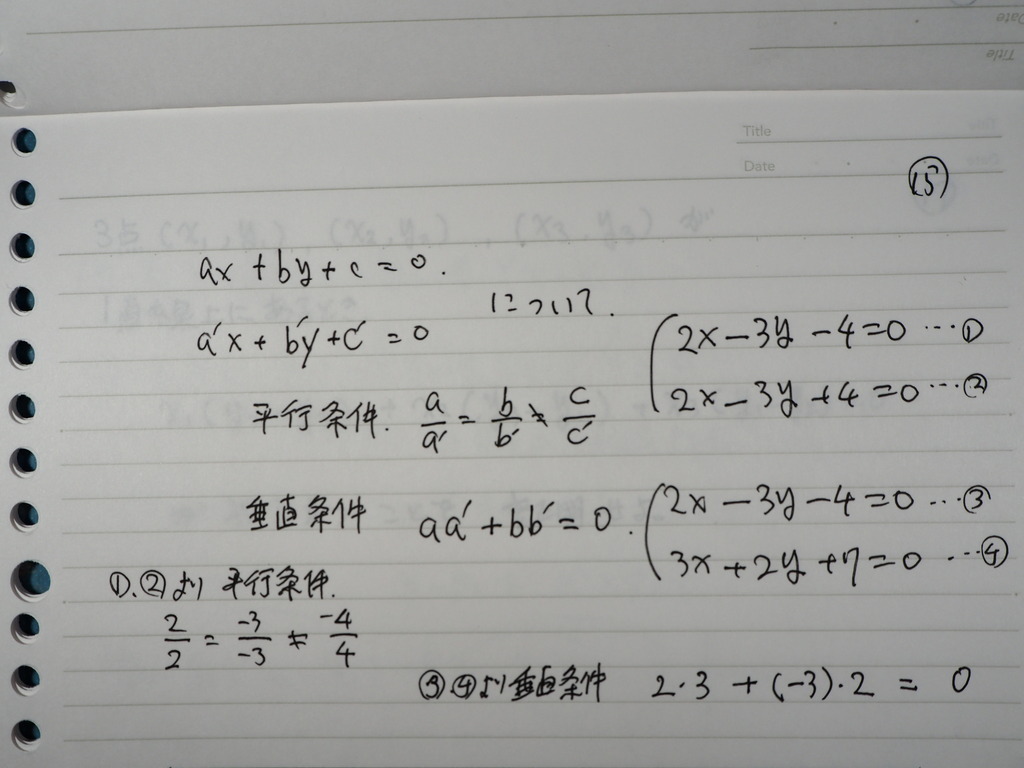 Title
Date
(15)
ax + by + c = 0.
a'x + b'y + c' = 0
について.
平行条件. a/a' = b/b' ≠ c/c'
2x - 3y - 4 = 0 … ①
2x - 3y + 4 = 0 … ②
垂直条件 aa' + bb' = 0.
2x - 3y - 4 = 0 … ③
3x + 2y + 7 = 0 … ④
①、②より 平行条件.
2/2 = -3/-3 ≠ -4/4
③④より垂直条件 2・3 + (-3)・2 = 0